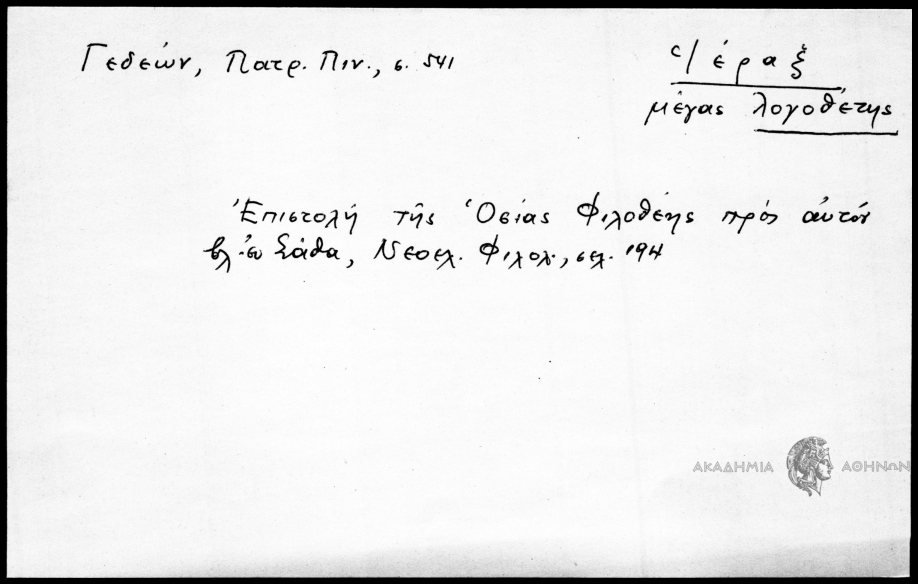 Γεδεών, Πατρ. Πιν., σ. 541
Ἱέραξ
μέγας λογοθέτης
Ἐπιστολή τῆς Ὁσίας Φιλοθέης πρός αὐτόν
βλ. ἐν Σάθα, Νεοελ. Φιλολ., σελ. 194
ΑΚΑΔΗΜΙΑ ΑΘΗΝΩΝ